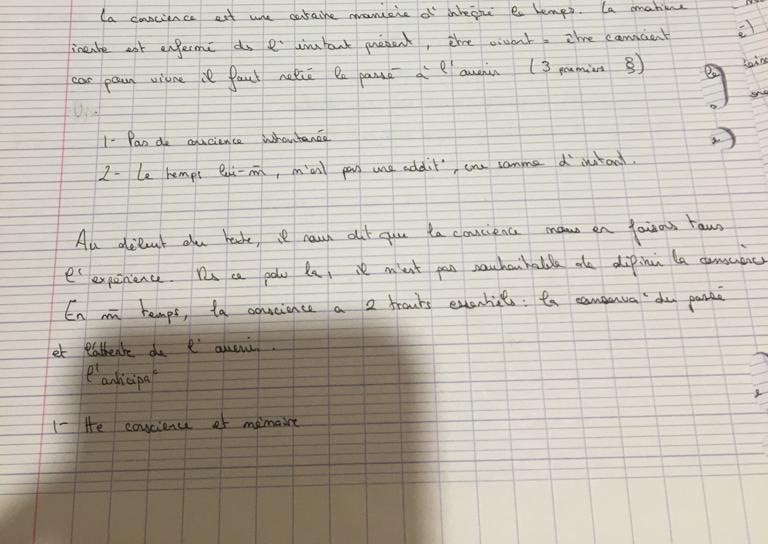 La conscience est une certaine manière d'intégré le temps. La matière
inerte est enfermé ds l'instant présent, être vivant = être conscient
car pour vivre il faut relié le passé à l'avenir (3 premiers §)
1- Pas de conscience instantanée
2- Le temps lui-m̂, n'est pas une addit°, une somme d'instant.
Au début du texte, il nous dit que la conscience nous en faisons tous
l'expérience. Ds ce pdv là, il n'est pas souhaitable de définir la conscience
En m̂ temps, la conscience a 2 traits essentiels : la conserva° du passé
et l'attente de l'avenir.
l'anticipa°
1- Tte conscience et mémoire